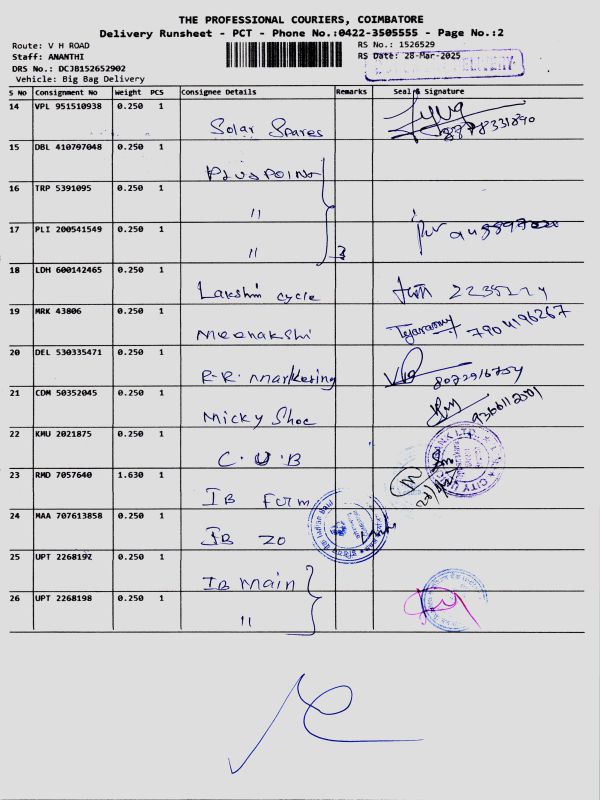 THE PROFESSIONAL COURIERS, COIMBATORE
Delivery Runsheet - PCT - Phone No.:0422-3505555 - Page No.:2
Route: V H ROAD RS No.: 1526529
Staff: ANANTHI RS Date: 28-Mar-2025
DRS No.: DCJB152652902
Vehicle: Big Bag Delivery
S No Consignment No Weight PCS Consignee Details Remarks Seal & Signature
14 VPL 951510938 0.250 1 Solar Spares
15 DBL 410797048 0.250 1 PLUS POINT
16 TRP 5391095 0.250 1 "
17 PLI 200541549 0.250 1 " 3
18 LDH 600142465 0.250 1 Lakshmi cycle
19 MRK 43806 0.250 1 Meenakshi 7904196267
20 DEL 530335471 0.250 1 R.R. Marketing 8072916754
21 CDM 50352045 0.250 1 Micky Shoe
22 KMU 2021875 0.250 1 C.U.B
23 RMD 7057640 1.630 1 IB Form
24 MAA 707613858 0.250 1 IB ZO
25 UPT 2268197 0.250 1 IB Main
26 UPT 2268198 0.250 1 "